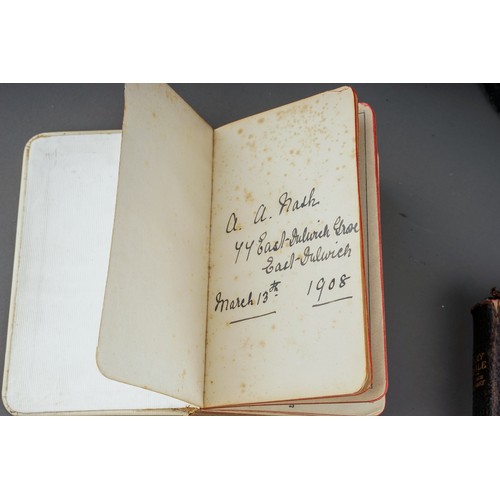 A. A. Nash
77 East-Dulwich Grove
East-Dulwich
March 13th 1908